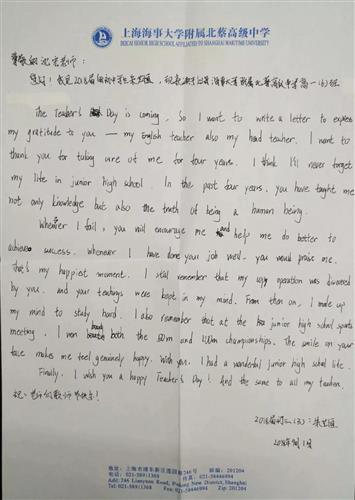 上海海事大学附属北蔡高级中学
BEICAI HONOR HIGH SCHOOL AFFILIATED TO SHANGHAI MARITIME UNIVERSITY
尊敬的 老师：
您好！我是2018届 初中毕业生朱 ，现就读于上海海事大学附属北蔡高级中学高一（6）班
The Teacher's Day is coming. So I want to write a letter to express
my gratitude to you — my English teacher also my head teacher. I want to
thank you for tutoring use of me for four years. I think I'll never forget
my life in junior high school. In the past four years, you have taught me
not only knowledge but also the truth of being a human being.
Whenever I fail, you will encourage me and help me do better to
achieve success. Whenever I have done your job well, you would praise me.
That's my happiest moment. I still remember that my operation was discovered
by you. and your teachings were kept in my mind. From then on, I made up
my mind to study hard. I also remember that at the junior high school sports
meeting, I won both the 800m and 100m championships. The smile on your
face makes me feel genuinely happy. With you, I had a wonderful junior high school life.
Finally, I wish you a happy Teacher's Day! And the same to all my teachers.
祝：老师们教师节快乐！
2018届初三（3）：朱
2018年9月1日
地址：上海市浦东新区莲园路246号 邮编：201204
电话：021-58911368 传真：021-58446994
Add: 246 Lianyuan Road, Pudong New District, Shanghai
Tel: 021-58911368 Fax: 021-58446994 Zip: 201204